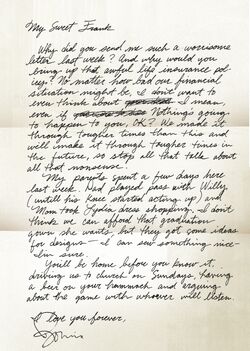 My Sweet Frank
Why did you send me such a worrisome
letter last week? And why would you
bring up that awful life insurance pol-
icy? No matter how bad our financial
situation might be, I don't want to
even think about I mean,
even if Nothing's going
to happen to you, OK? We made it
through tougher times than this and
we'll make it through tougher times in
the future, so stop all that talk about
all that nonsense.
My parents spent a few days here
last week. Dad played pass with Willy
(until his knee started acting up) and
Mom took Lydia dress shopping. I don't
think we can afford that graduation
gown she wants, but they got some ideas
for designs— I can sew something nice—
I'm sure.
You'll be home before you know it,
driving us to church on Sundays, having
a beer on your hammock and arguing
about the game with whoever will listen.
I love you forever,